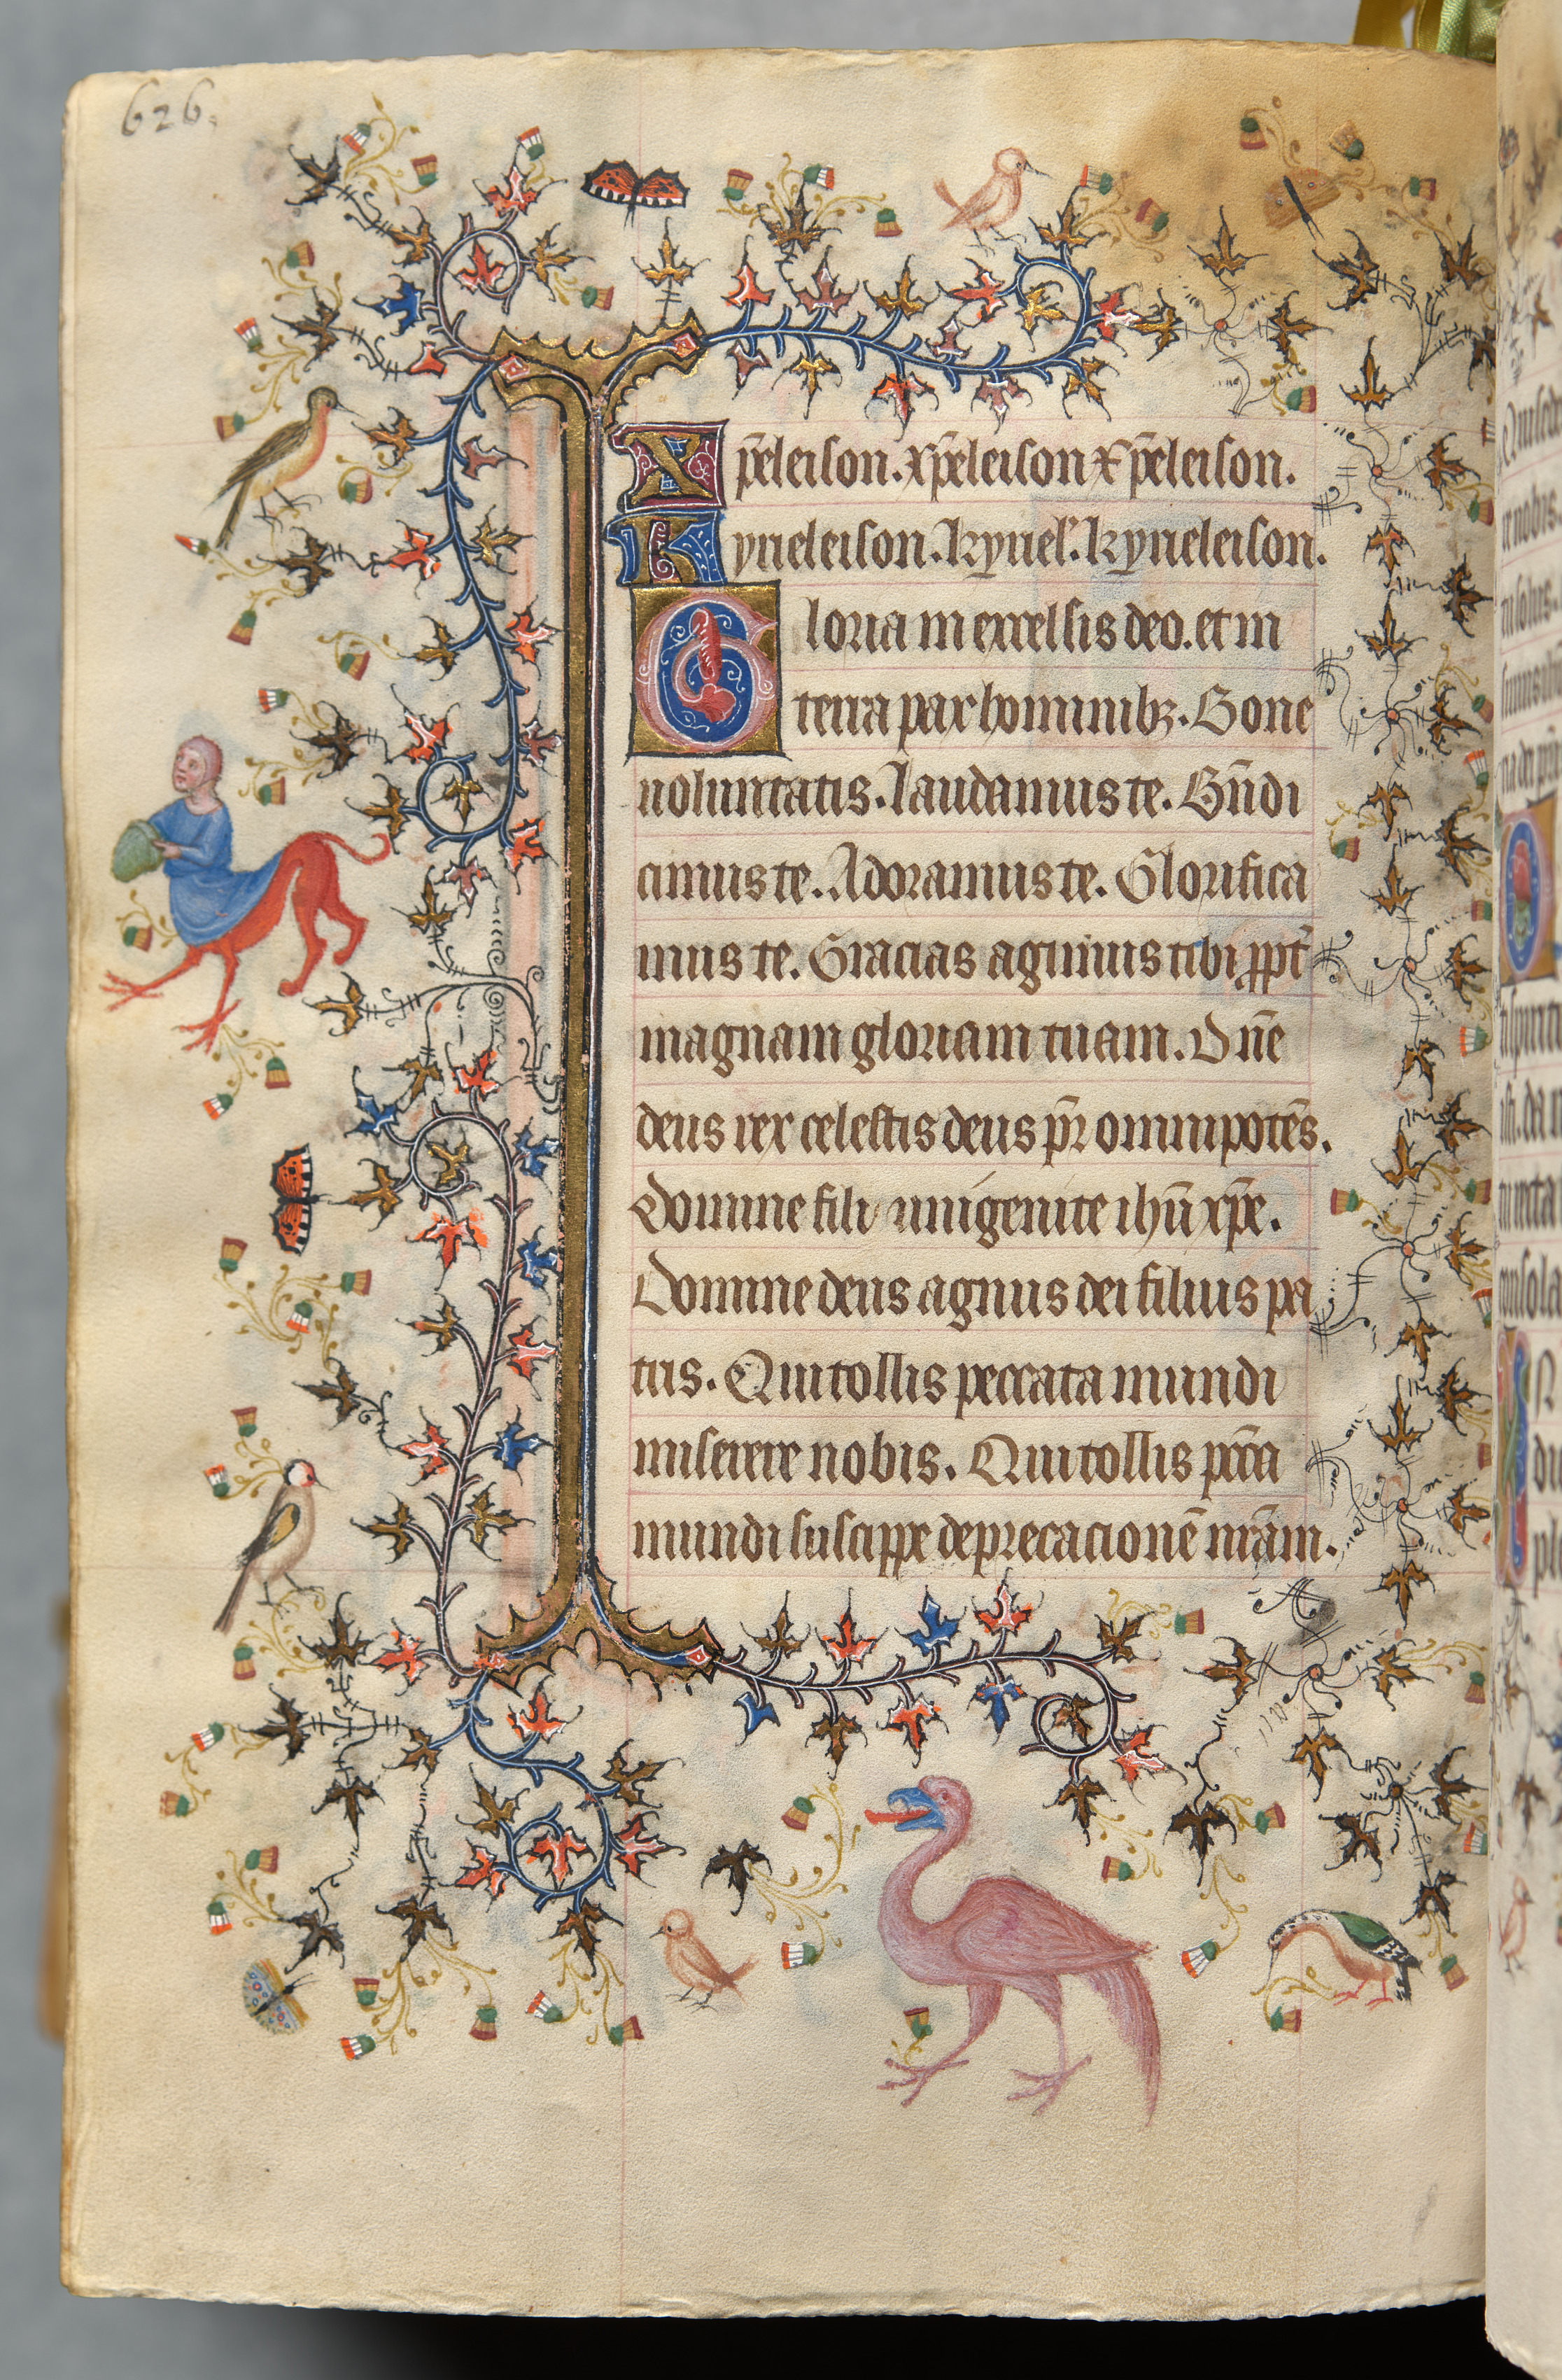 626.
Xp̄eleison. xp̄eleison xp̄eleison.
Kyrieleison. kyriel'. kyrieleison.
Gloria in excelsis deo. et in
terra pax hominibꝫ. Bone
uoluntatis. laudamus te. Bn̄di
cimus te. Adoramus te. Glorifica
mus te. Gracias agimus tibi ꝓpt̄
magnam gloriam tuam. Dn̄e
deus rex celestis deus pr̄ omnipotēs.
Domine fili unigenite ihū xp̄e.
Domine deus agnus dei filius pa
tris. Qui tollis peccata mundi
miserere nobis. Qui tollis pc̄ca
mundi suscippe deprecacionē nr̄am.